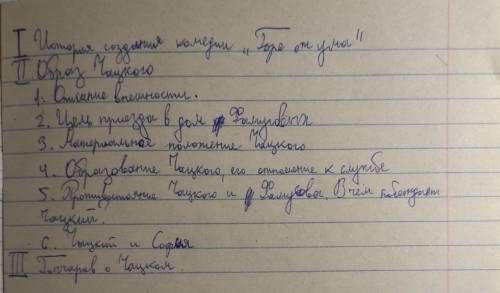 I История создания комедии „Горе от ума"
II Образ Чацкого
1. Описание внешности.
2. Цель приезда в дом Фамусовых
3. Материальное положение Чацкого
4. Образование Чацкого, его отношение к службе
5. Противостояние Чацкого и Фамусова. В чем побеждает
Чацкий.
6. Чацкий и Софья
III Гончаров о Чацком.